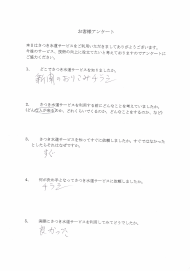 お客様アンケート
本日はきつき水道サービスをご利用いただきましてありがとうございます。
今後のサービス、技術の向上に役立てたいと考えておりますのでアンケートに
ご協力ください。
1. どこできつき水道サービスを知りましたか。
新聞のおりこみチラシ
2. きつき水道サービスを利用する前にどんなことを考えていましたか。
3. きつき水道サービスを知ってすぐに依頼しましたか。すぐではなかった
としたらそれはなぜですか。
すぐ
4. 何が決め手となってきつき水道サービスに依頼しましたか。
チラシ
5. 実際にきつき水道サービスを利用してみてどうでしたか。
良かった